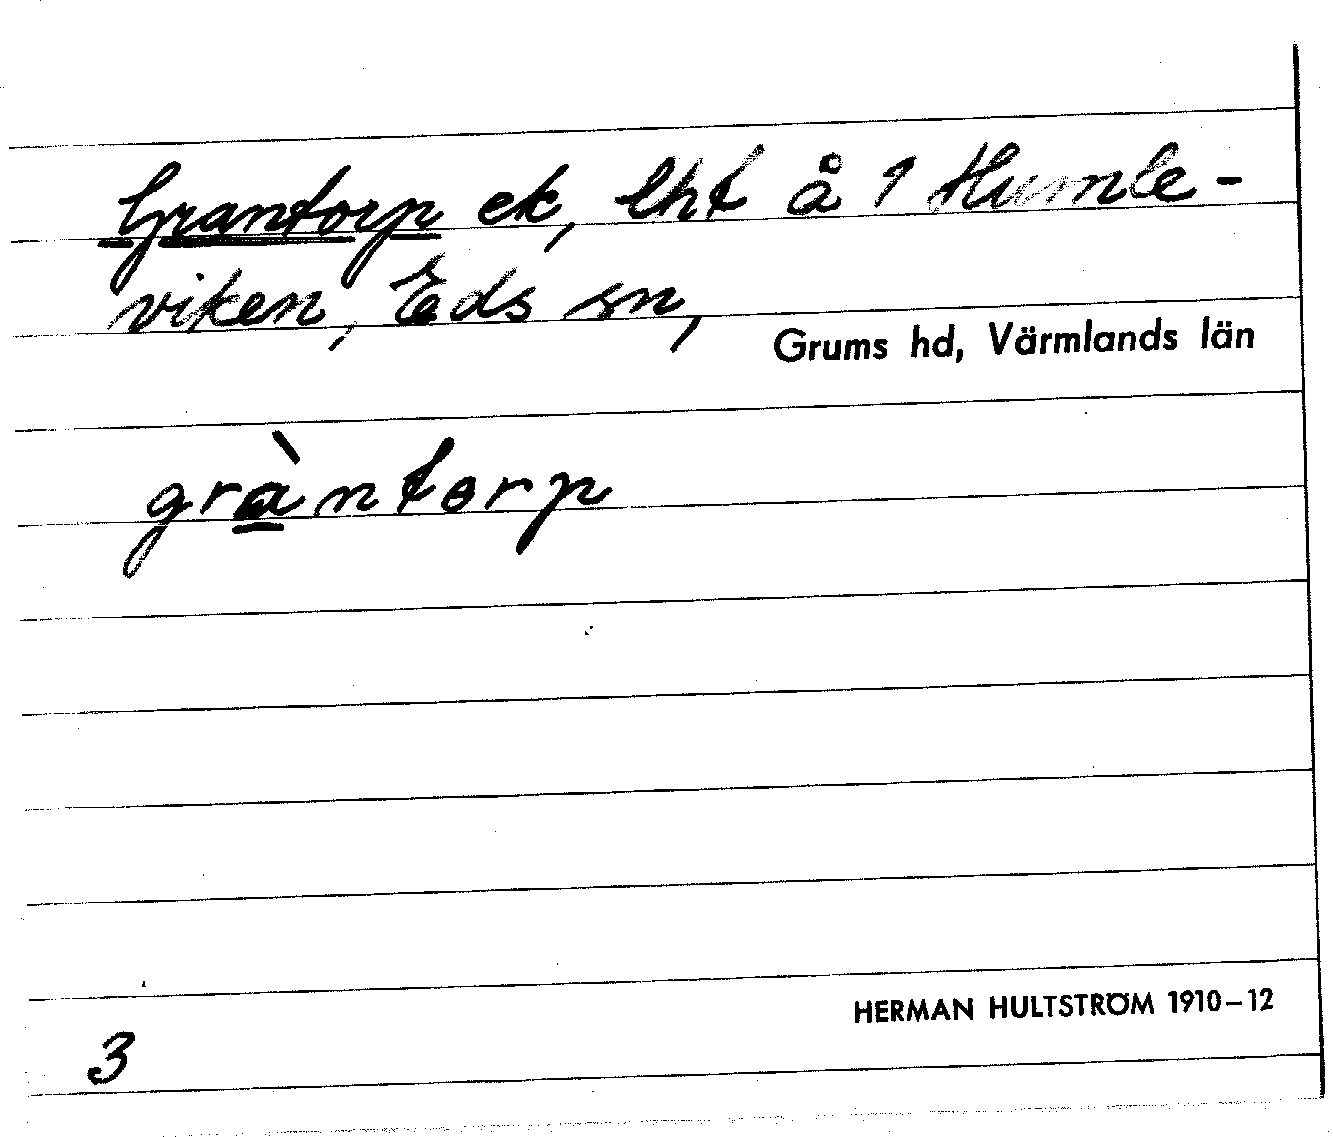 Grantorp ek, lht å 1 Humle-
viken, Eds sn,
Grums hd, Värmlands län
gràntorp
HERMAN HULTSTRÖM 1910-12
3